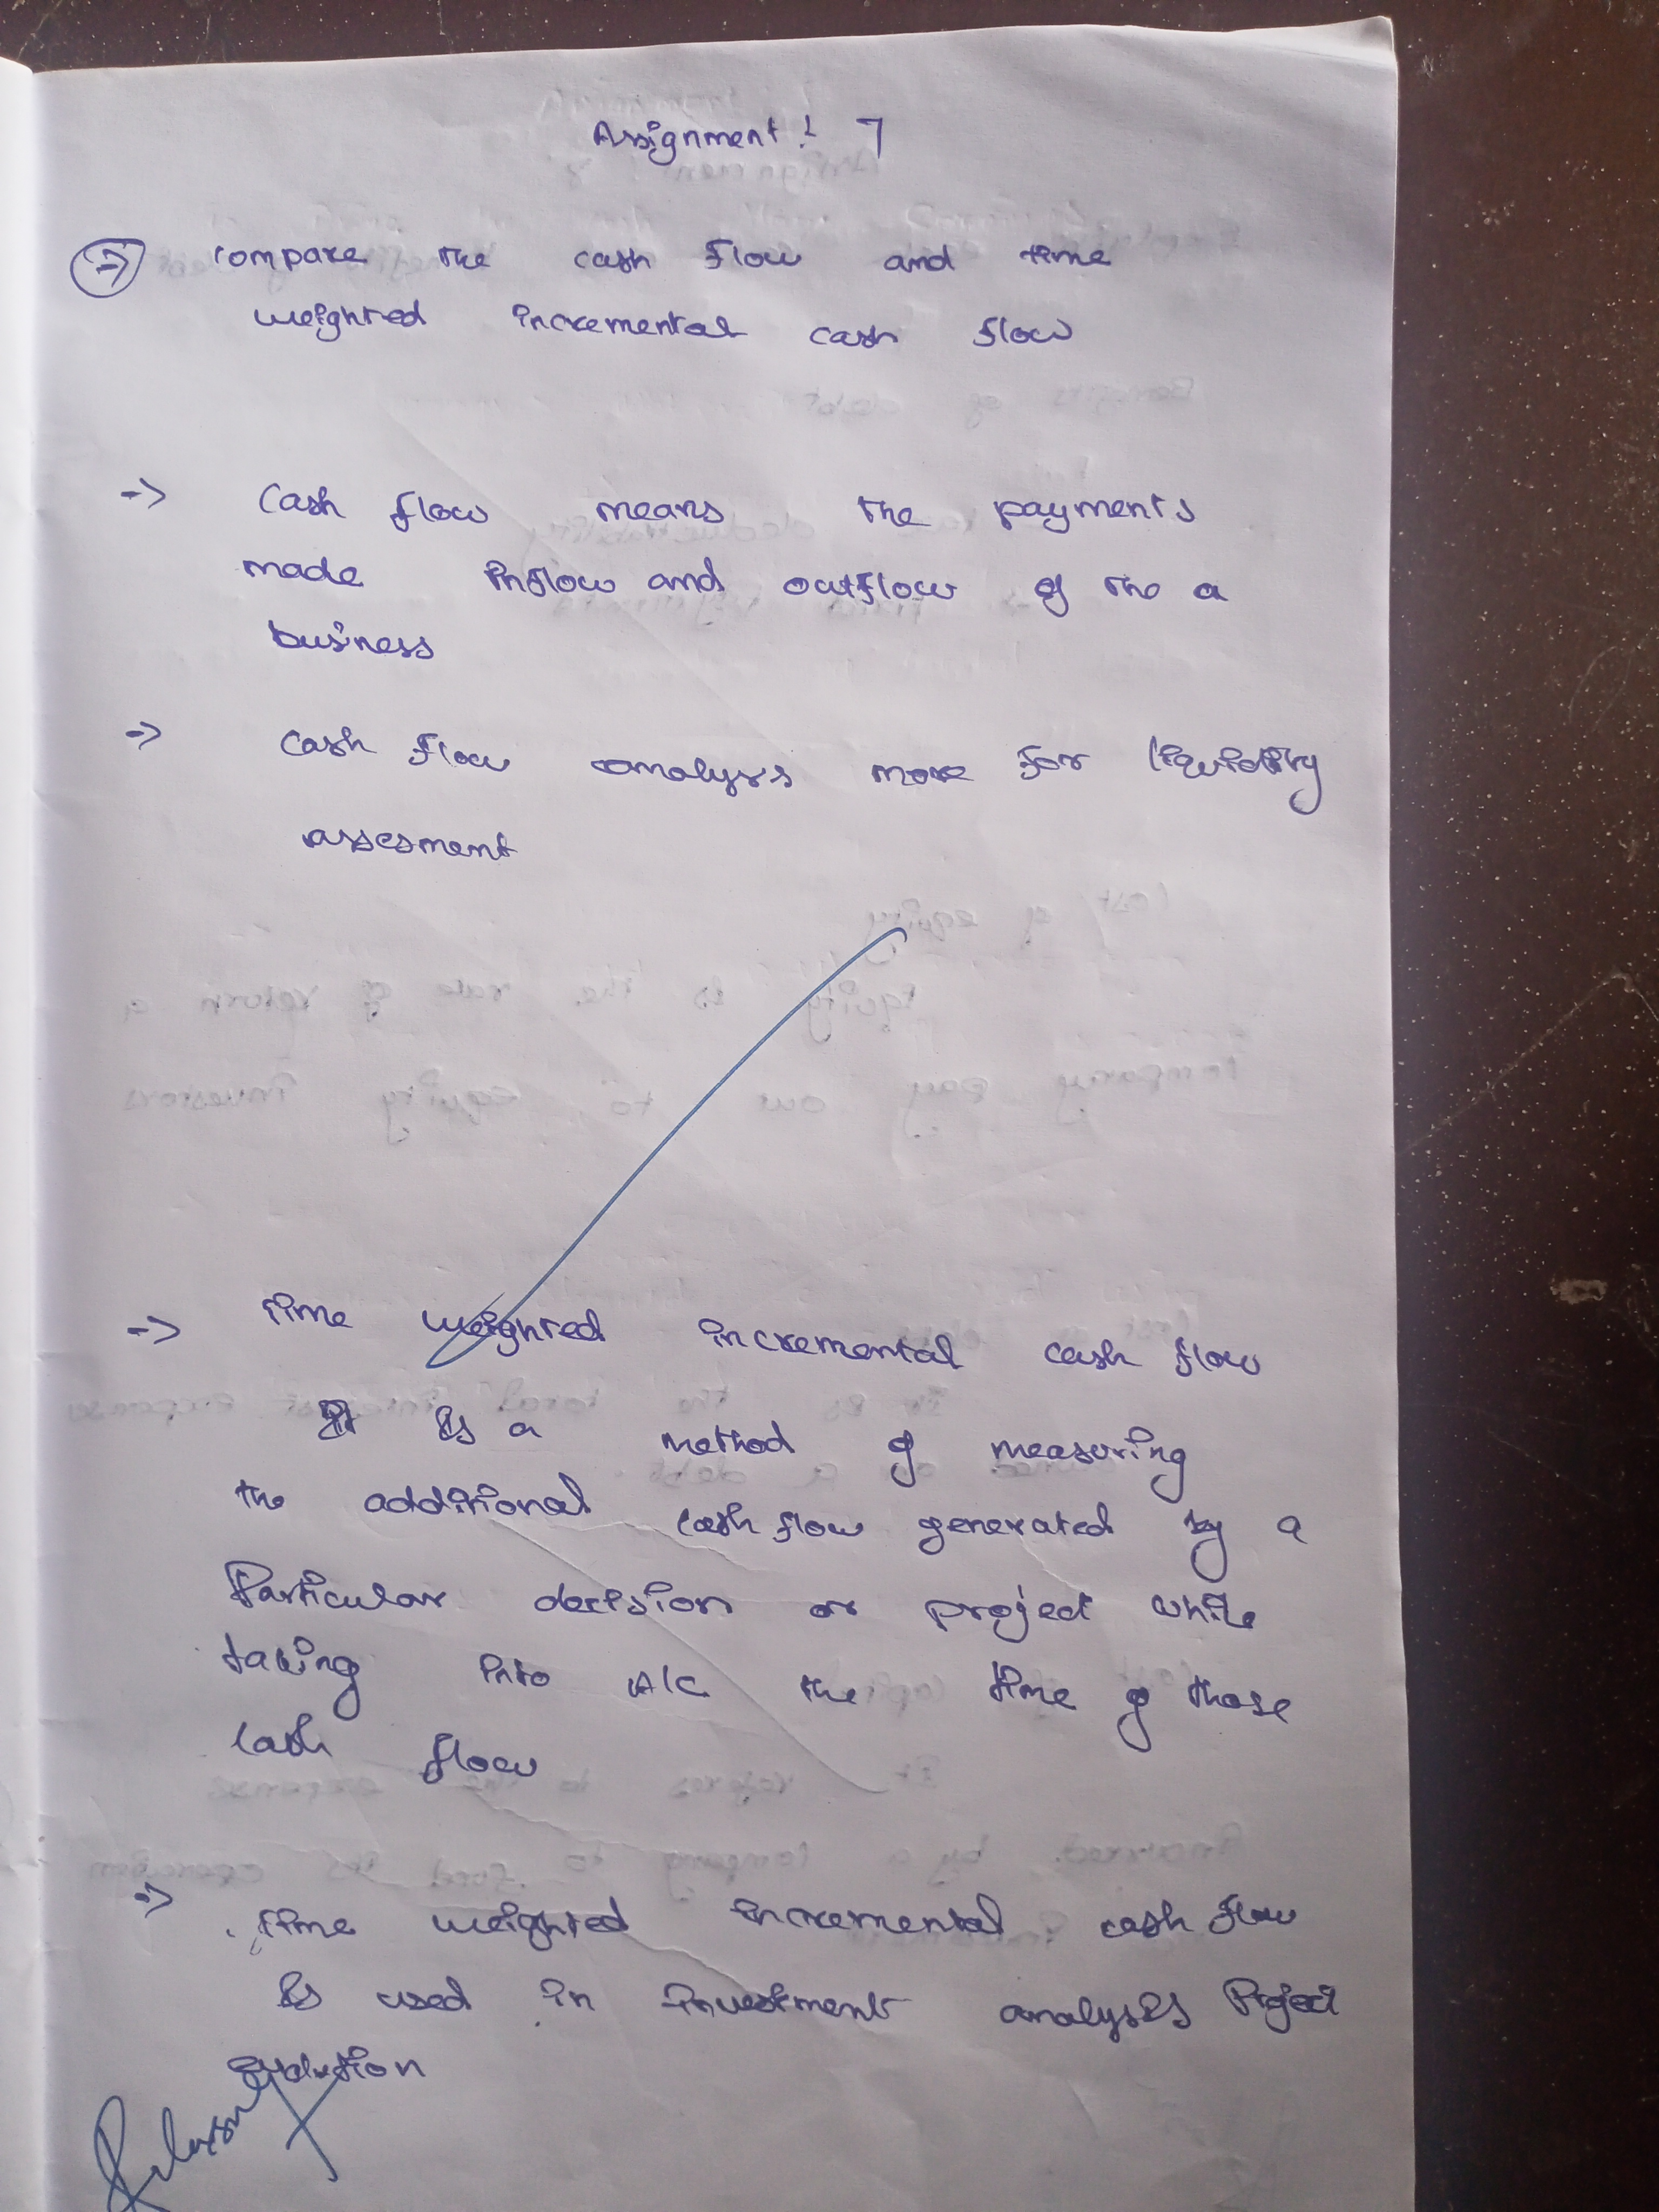 Assignment: 7
=> compare the cash flow and time
weighted incremental cash flow
=> Cash flow means the payments
made inflow and outflow of the a
business
=> Cash flow analysis more for liquidity
assesment
=> Time weighted incremental cash flow
It is a method of measuring
the additional cash flow generated by a
Particular decision or project while
taking into A/C the time of those
cash flow
=> Time weighted incremental cash flow
is used in investment analysis Project
evalution